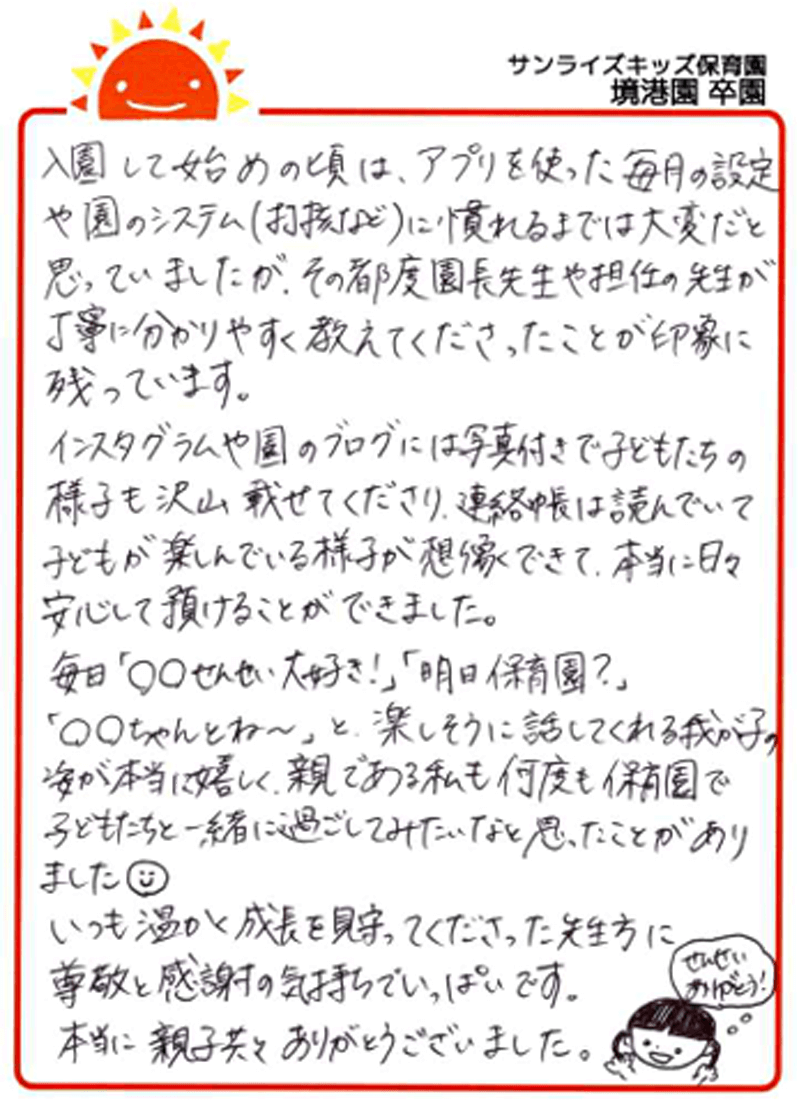 サンライズキッズ保育園
境港園 卒園
入園して始めの頃は、アプリを使った毎月の設定
や園のシステム(打刻など)に慣れるまでは大変だと
思っていましたが、その都度園長先生や担任の先生が
丁寧に分かりやすく教えてくださったことが印象に
残っています。
インスタグラムや園のブログには写真付きで子どもたちの
様子も沢山載せてくださり、連絡帳は読んでいて
子どもが楽しんでいる様子が想像できて、本当に日々
安心して預けることができました。
毎日「〇〇せんせい大好き!」「明日保育園?」
「〇〇ちゃんとね〜」と、楽しそうに話してくれる我が子の
姿が本当に嬉しく、親である私も何度も保育園で
子どもたちと一緒に過ごしてみたいなと思ったことがあり
ました
いつも温かく成長を見守ってくださった先生方に
尊敬と感謝の気持ちでいっぱいです。
本当に親子共々ありがとうございました。
せんせい
ありがとう!